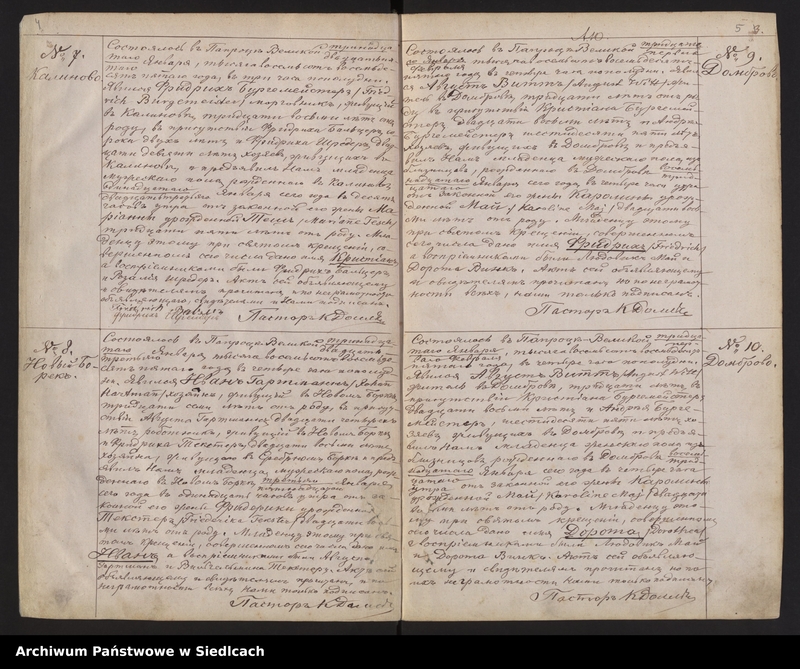 4
№ 7.
Калиново
Состоялось въ Папроцѣ Великой тринадца
таго Января, тысяча восемьсотъ восемьде
сятъ пятаго года, въ три часа пополудни.
Явился Фридрихъ Бургемейстеръ, /Fried
rich Burgemeister/
въ Калиновѣ, тридцати восьми лѣтъ отъ
роду, въ присутствіи Фридриха Бальцеръ, со
рока двухъ лѣтъ и Фридриха Шредеръ, двад
цати девяти лѣтъ хозяевъ, живущихъ въ
Калиновѣ, и предъявилъ Намъ младенца
мужескаго пола, рожденнаго въ Калиновѣ
Января сего года въ десять
часовъ утра, отъ законной его жены Ма
ріанны урожденной Тешъ, /Maryanna Tesch/
тридцати пяти лѣтъ отъ роду. Мла
денцу этому при святомъ крещеніи, со
вершенномъ сего числа дано имя Кристіанъ,
а воспріемниками были Фридрихъ Бальцеръ
и Розалія Шредеръ. Актъ сей объявляющему
и свидѣтелямъ прочитанъ,
Нами подписанъ.
Пасторъ К Долмъ
№ 8.
Новый Бо
рекъ.
Состоялось въ Папроцѣ Великой тринадца
таго Января тысяча восемьсотъ восемьде
сятъ пятаго года въ четыре часа пополу
дни. Явился Иванъ Гартманнъ, /Johann
Hartman/ хозяинъ, живущій въ Новомъ Боркѣ,
тридцати семи лѣтъ отъ роду, въ присут
ствіи Августа Гартманнъ двадцати четырехъ
лѣтъ работника, живущій въ Новомъ Боркѣ
и Фридриха Текстеръ, двадцати восьми лѣтъ
хозяина, живущаго въ Среднемъ Боркѣ и предъ
явилъ Намъ младенца, мужескаго пола, рож
деннаго въ Новомъ Боркѣ третьяго Января
сего года въ одинадцать часовъ утра отъ за
конной его жены Фридерики урожденной
Текстеръ, /Friderika Textor/ двадцати вось
ми лѣтъ отъ роду. Младенцу этому при свя
томъ крещеніи, совершенномъ сего числа дано имя
Иванъ, а воспріемниками были Августъ
Гартманъ и Вильгельмина Текстеръ. Актъ сей
объявляющему и свидѣтелямъ прочитанъ, и по
неграмотности всѣхъ нами только подписанъ.
Пасторъ К Долмъ
5
3.
№ 9.
Домброво.
Состоялось въ Папроцѣ Великой тридцать
перваго
Января тысяча восемьсотъ восемьдесятъ
пятаго года, въ четыре часа пополудни. Явил
ся Августъ Виттъ, /August Witt/
въ Домбровѣ, тридцати лѣтъ отъ ро
ду въ присутствіи Кристіана Бургемей
стеръ двадцати восьми лѣтъ и Андрея
Бургемейстеръ шестидесяти пяти лѣтъ
хозяевъ, живущихъ въ Домбровѣ и предъя
вилъ Намъ младенца мужескаго пола, изъ
близнецовъ, рожденнаго въ Домбровѣ
Января сего года въ четыре часа утра
отъ законной его жены Каролины урож
денной Май, /Karoline Maj/ двадцати вось
ми лѣтъ отъ роду. Младенцу этому
при святомъ Крещеніи, совершенномъ
сего числа дано имя Фридрихъ, /Friedrich/
а воспріемниками были Людовикъ Май и
Дорота Винкъ. Актъ сей объявляющему
и свидѣтелямъ прочитанъ, но по неграмот
ности всѣхъ, нами только подписанъ.
Пасторъ К Долмъ
№ 10.
Домброво.
Состоялось въ Папроцѣ Великой
Января, тысяча восемьсотъ восемьдесятъ
пятаго года, въ четыре часа пополудни.
Явился Августъ Виттъ, /August Witt/
житель въ Домбровѣ, тридцати лѣтъ въ
присутствіи Кристіана Бургемейстеръ
двадцати восьми лѣтъ и Андрея Бурге
мейстеръ, шестидесяти пяти лѣтъ, хо
зяевъ живущихъ въ Домбровѣ, и предъя
вилъ Намъ младенца женскаго пола изъ
близнецовъ рожденнаго въ Домбровѣ
Января сего года въ четыре часа
утра отъ законной его жены Каролины
урожденной Май, /Karoline Maj/ двадцати
восьми лѣтъ отъ роду. Младенцу это
му при святомъ крещеніи, совершенномъ
сего числа дано имя Дорота, /Dorothea/
воспріемниками были Людовикъ Май
и Дорота Винкъ. Актъ сей объявляю
щему и свидѣтелямъ прочитанъ, но по
ихъ неграмотности Нами только подписанъ.
Пасторъ К Долмъ
Archiwum Państwowe w Siedlcach